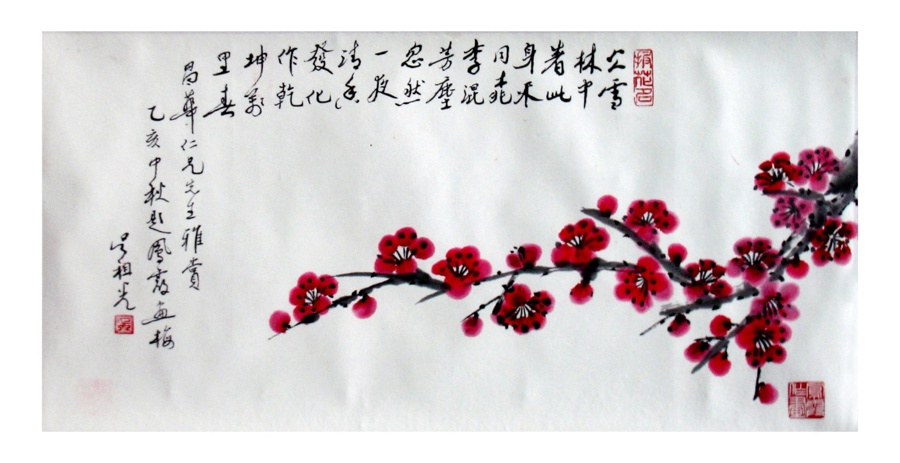 冰雪
林中
着此
身不
同桃
李混
芳塵
忽然
一夜
清香
發化
作乾
坤萬
里春
昌華仁兄先生雅賞
乙亥中秋題鳳霞画梅
吴祖光